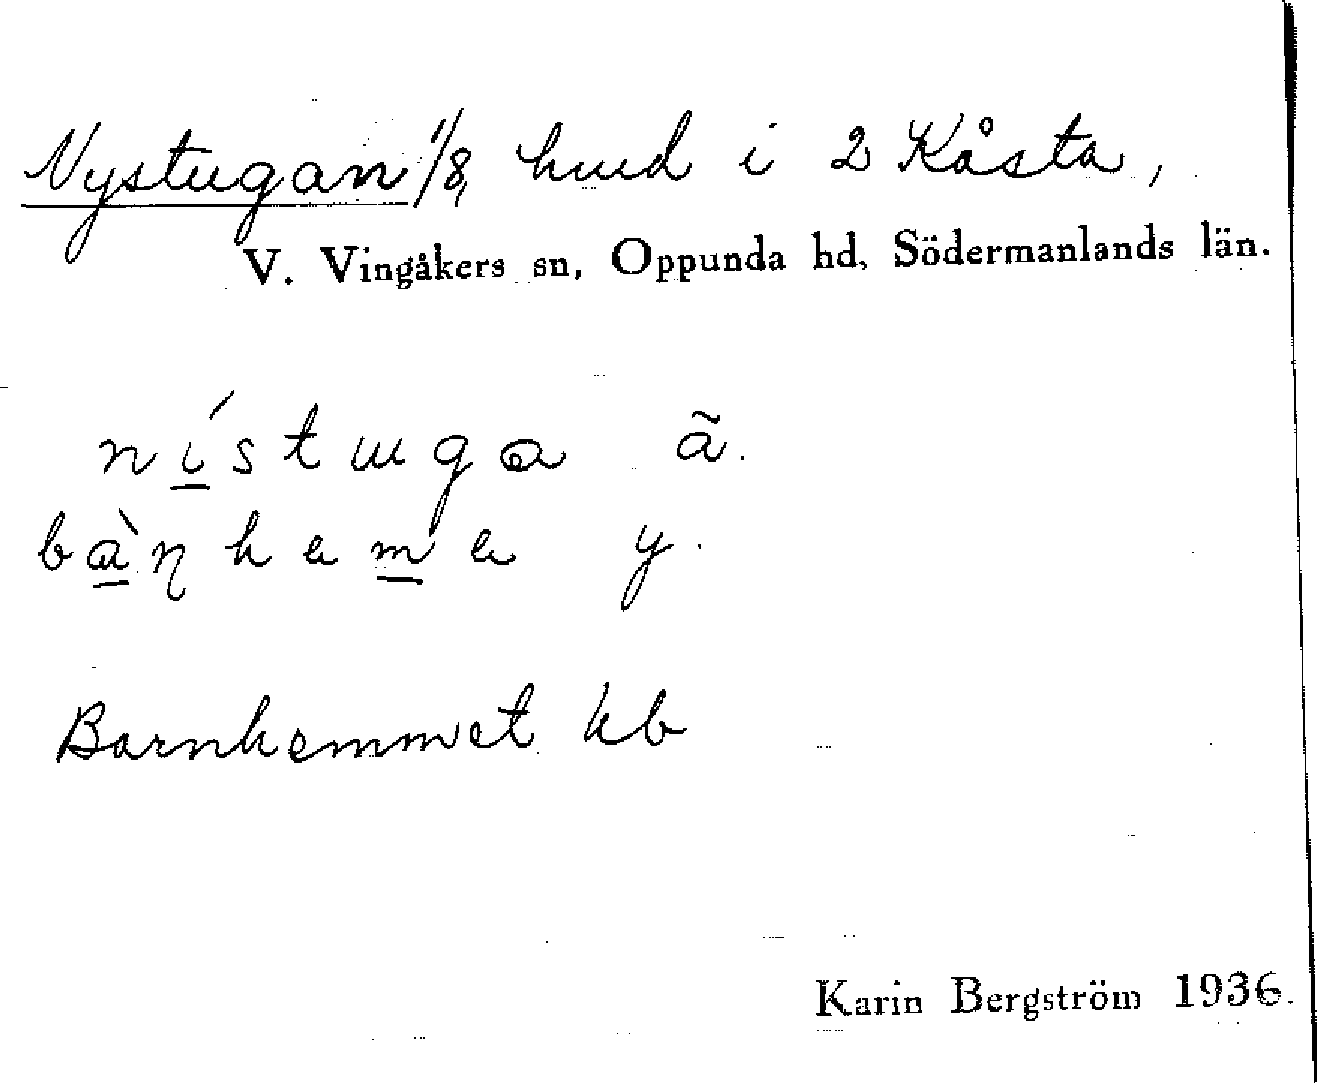 Nystugan 1/8 hmd i 2 Kåsta,
V. Vingåkers sn, Oppunda hd, Södermanlands län.
nístɯga ã.
bàɳheme y.
Barnhemmet kb
Karin Bergström 1936.